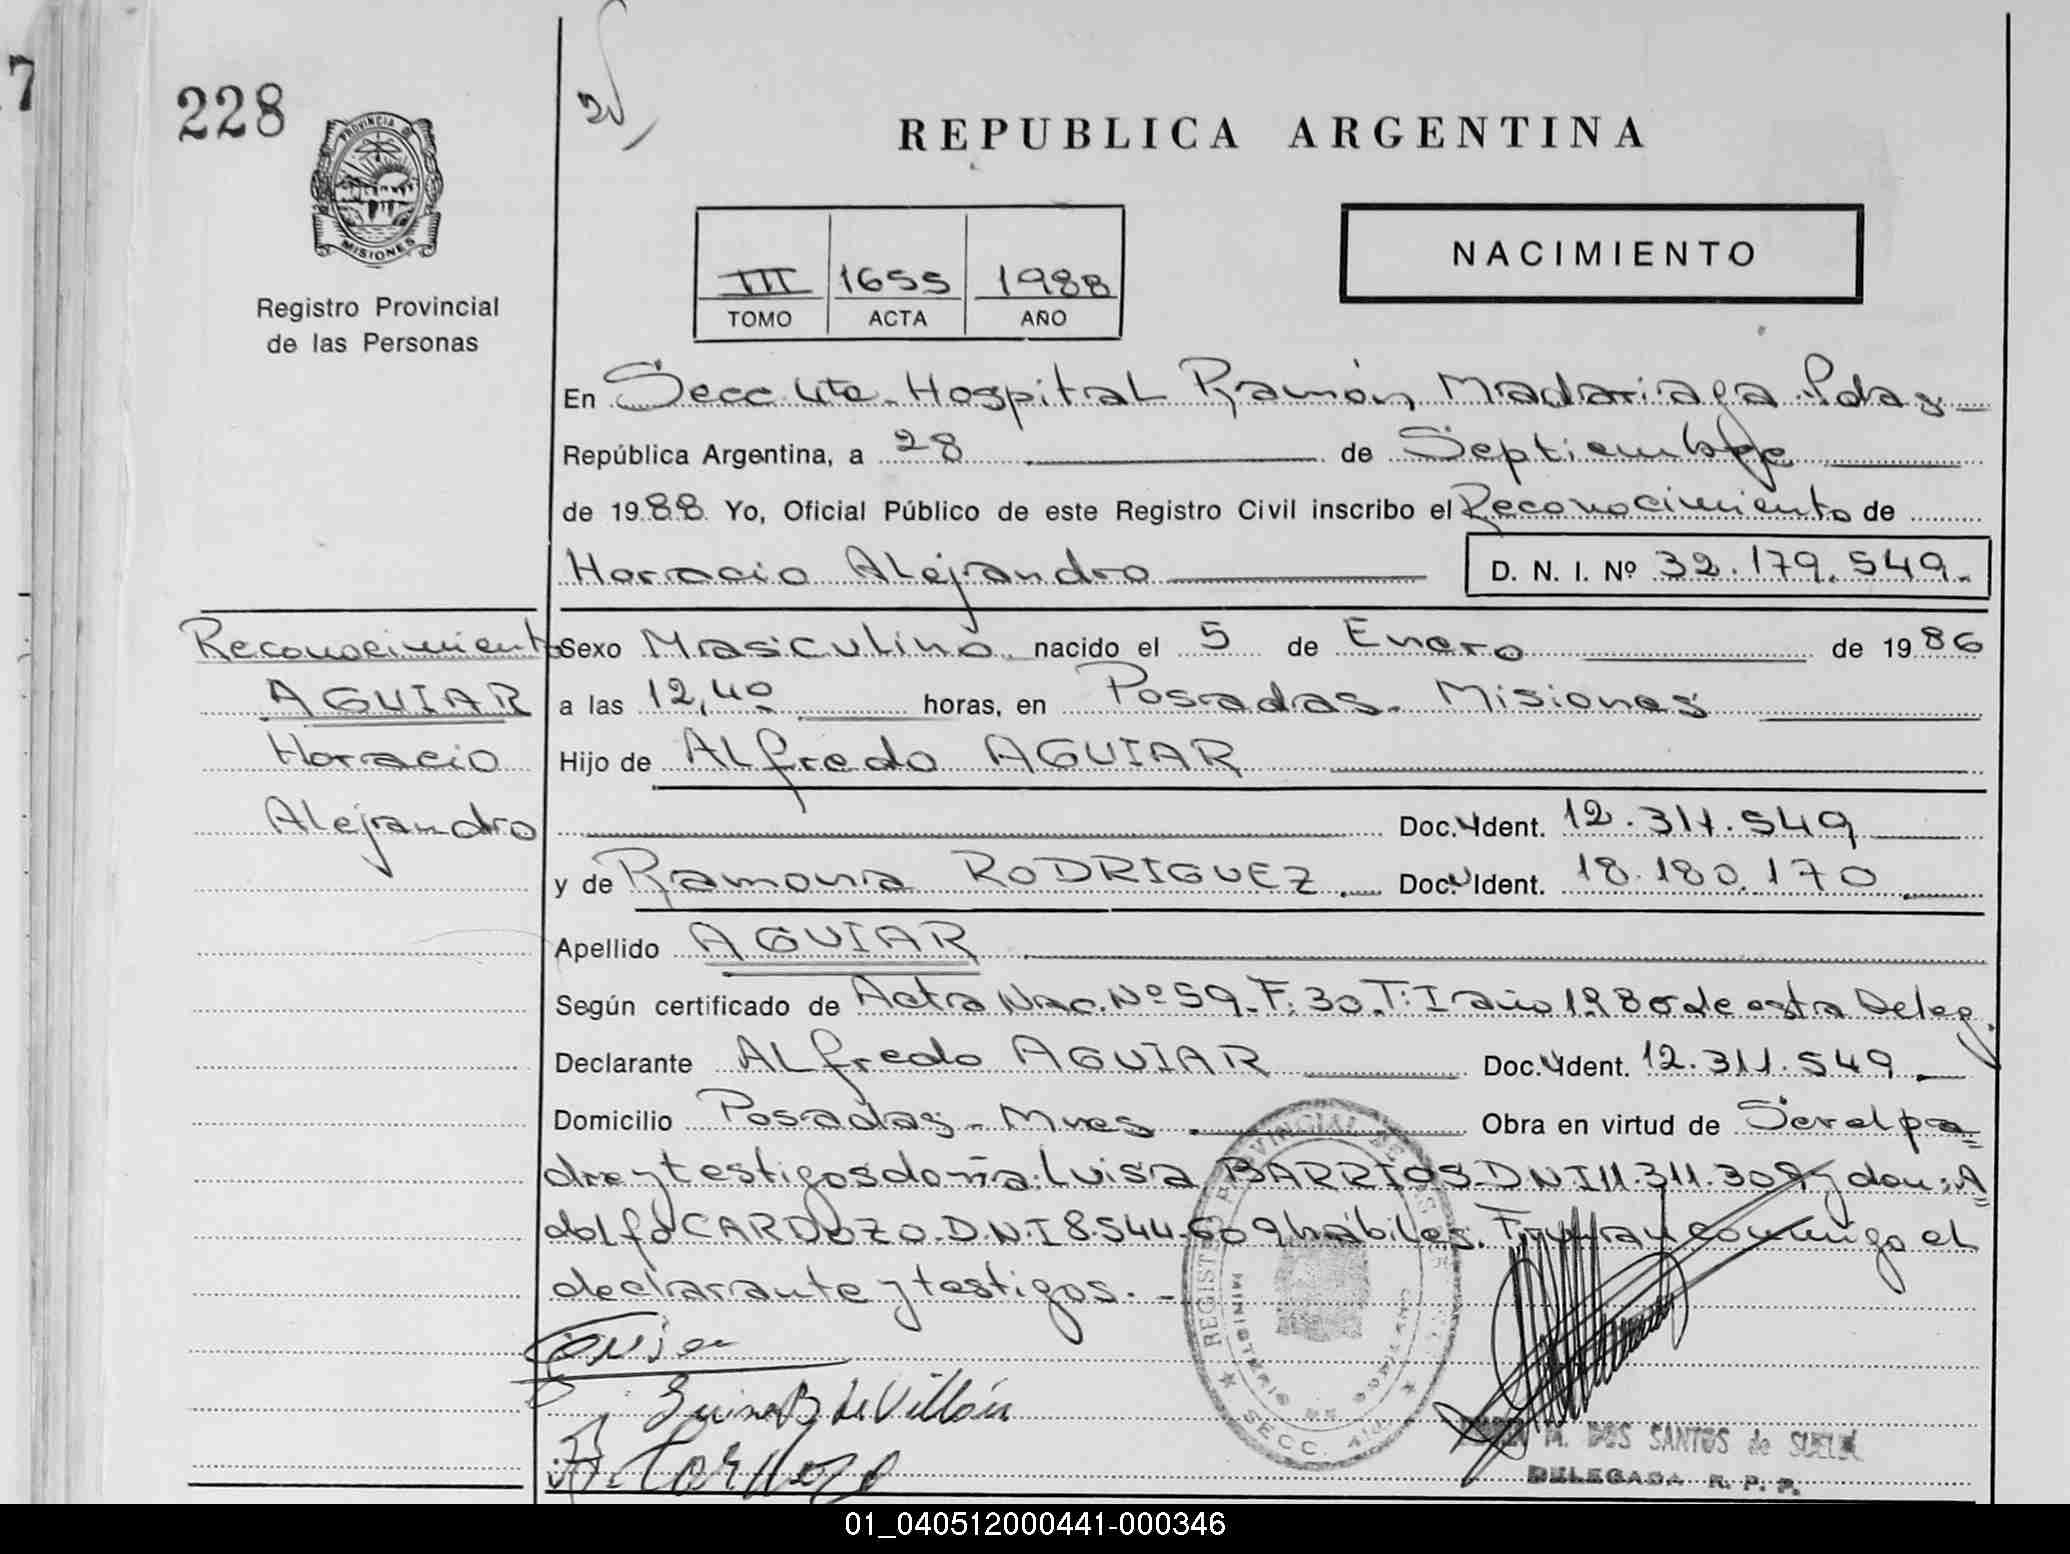 7
228
PROVINCIA DE
MISIONES
Registro Provincial
de las Personas
REPUBLICA ARGENTINA
NACIMIENTO
III 1655 1988
TOMO ACTA AÑO
En Secc 4ta. Hospital Ramón Madariaga. Pdas
República Argentina, a 28 de Septiembre
de 1988 Yo, Oficial Público de este Registro Civil inscribo el Reconocimiento de
Horacio Alejandro D. N. I. Nº 32.179.549.
Reconocimiento
AGUIAR
Horacio
Alejandro
Sexo Masculino nacido el 5 de Enero de 1986
a las 12,40 horas, en Posadas. Misiones
Hijo de Alfredo AGUIAR
Doc. Ident. 12.311.549
y de Ramona RODRIGUEZ. Doc. Ident. 18.180.170
Apellido AGUIAR
Según certificado de Acta Nac. Nº 59. F. 30. T: I año 1986 de esta Deleg.
Declarante Alfredo AGUIAR Doc. Ident. 12.311.549.
Domicilio Posadas - Mnes. Obra en virtud de Ser el pa=
dre y testigos doña: Luisa BARRIOS. D.N.I 11.311.309 y don: A=
dolfo CARDOZO. D.N.I 8.544.609 hábiles. Firman conmigo el
declarante y testigos. -
Luisa B de Villán
A. Cardozo
REGISTRO PROVINCIAL
MINISTERIO DE
SECC. 4ta
M. DOS SANTOS de
DELEGADA R. P. P.
01_040512000441-000346